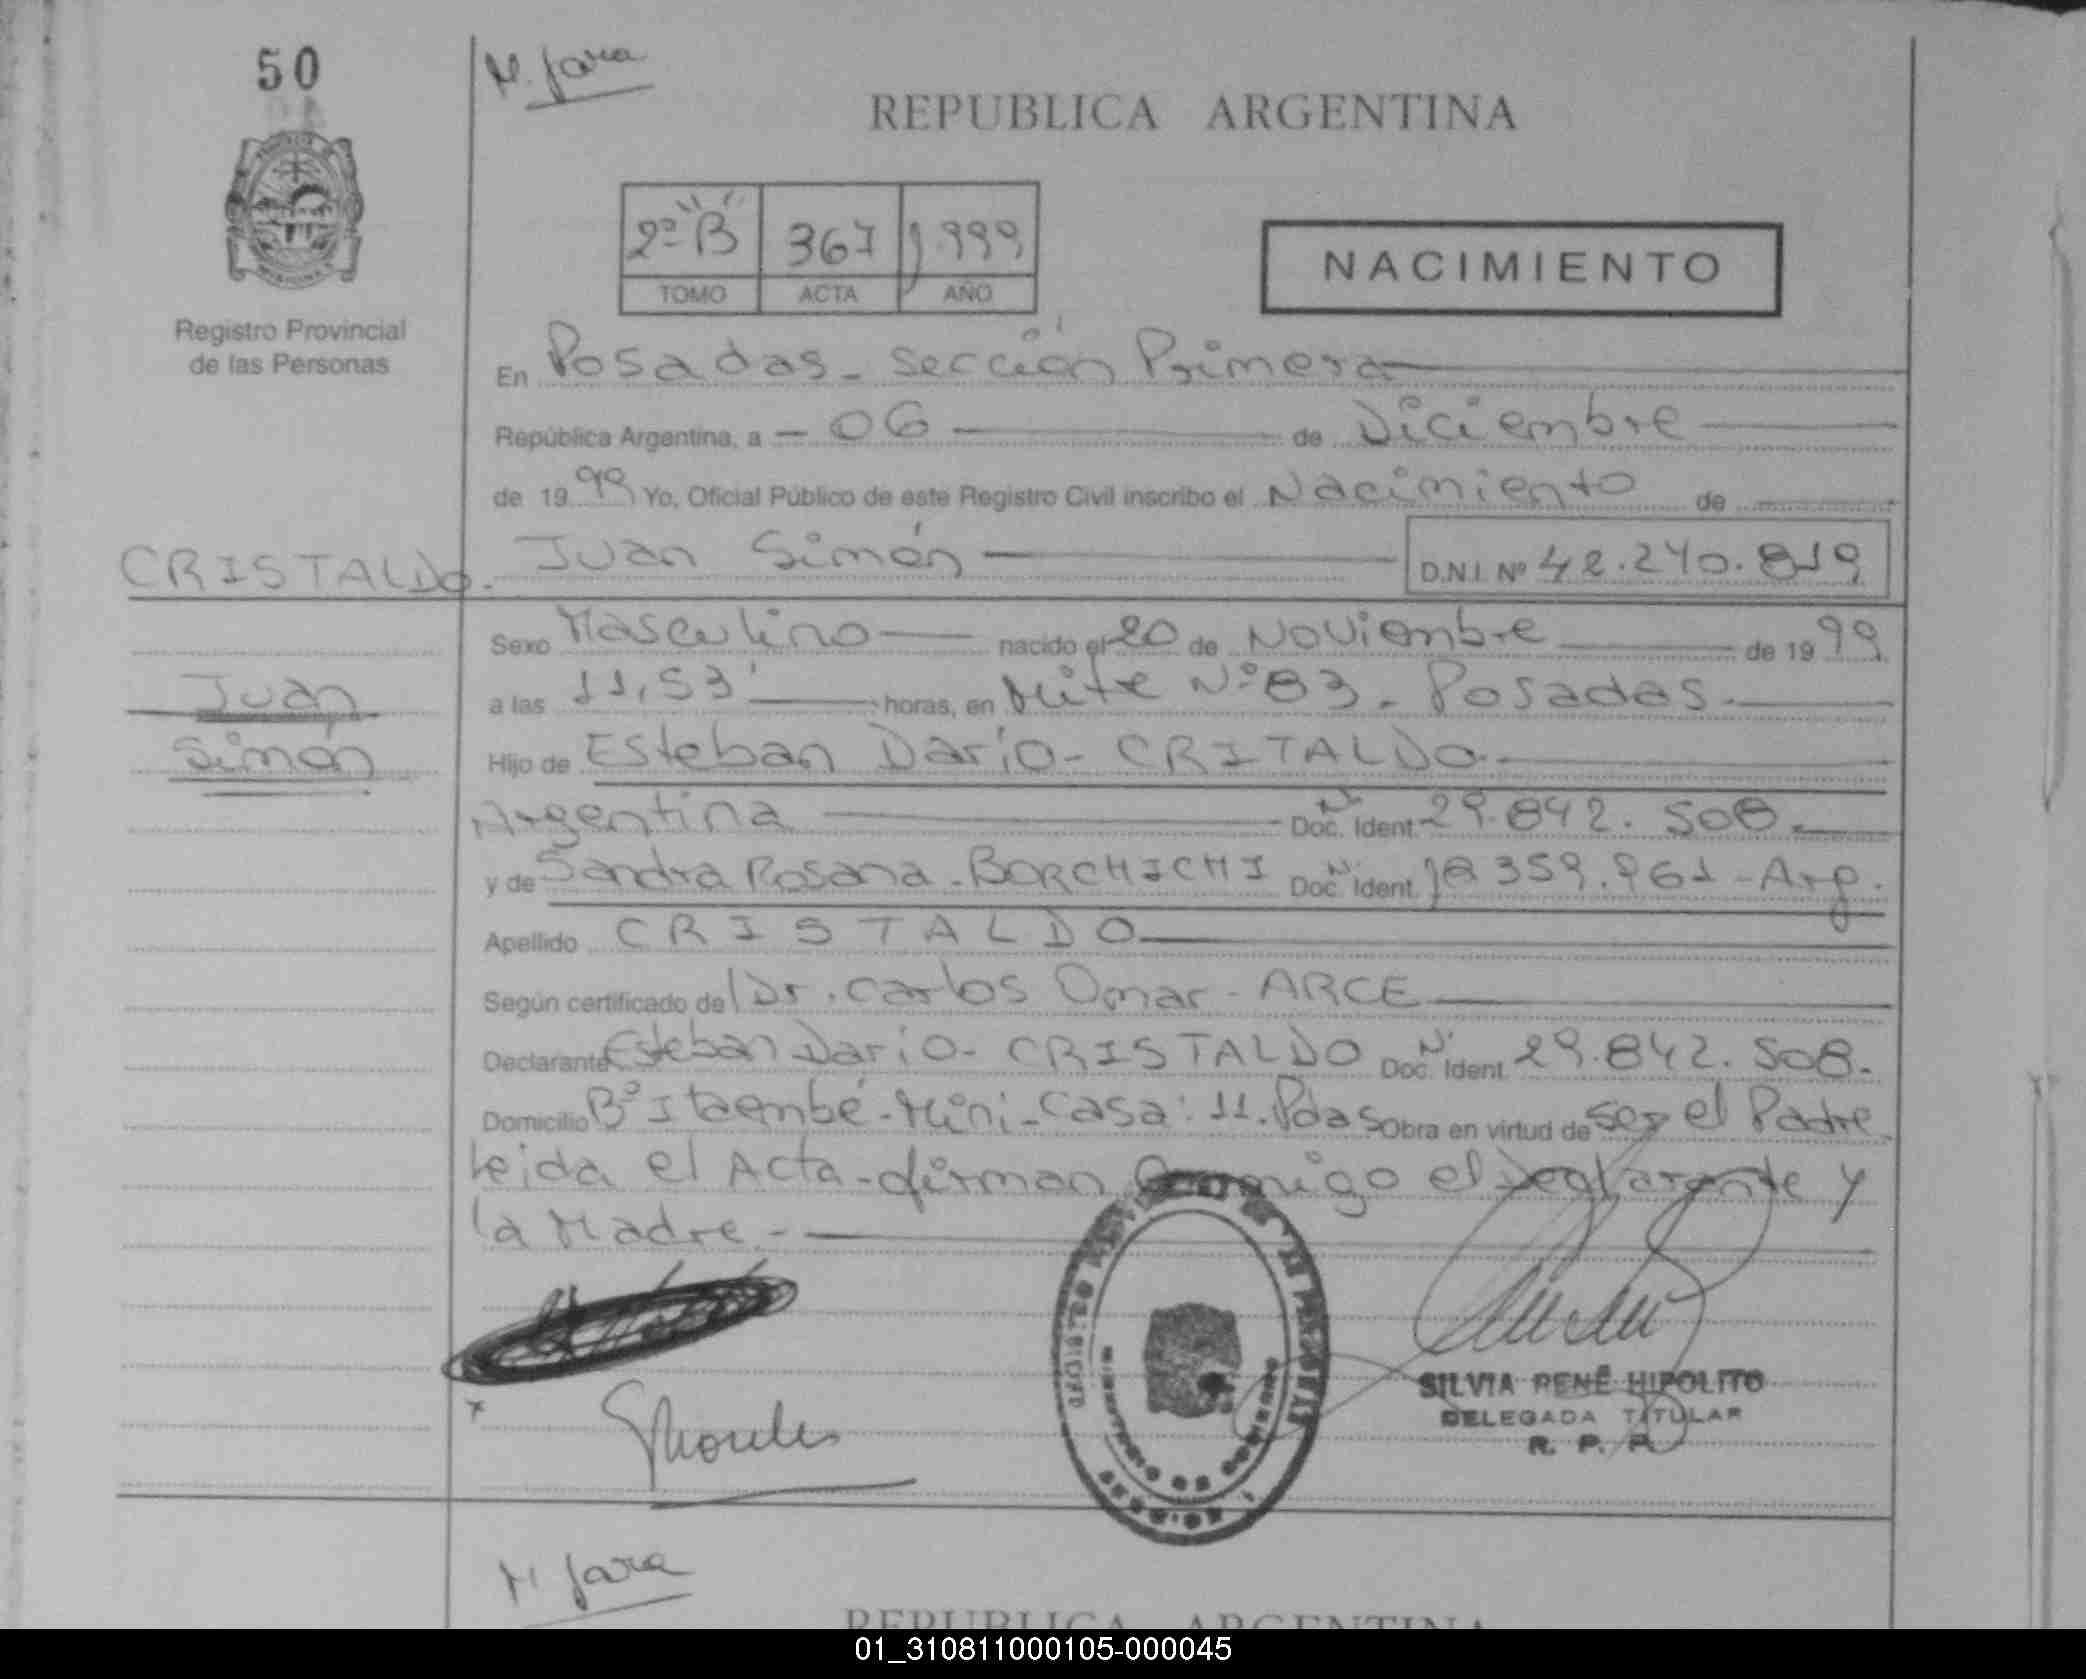 50
M. Jara
REPUBLICA ARGENTINA
2º "B" 367 1999
TOMO ACTA AÑO
NACIMIENTO
Registro Provincial
de las Personas
En Posadas - Sección Primera
República Argentina, a - 06 de Diciembre
de 1999 Yo, Oficial Público de este Registro Civil inscribo el Nacimiento de
CRISTALDO. Juan Simón D.N.I. Nº 42.240.819
Sexo Masculino nacido el 20 de Noviembre de 1999
Juan
a las 11,53' horas, en Mitre Nº 83 - Posadas.
Simón
Hijo de Esteban Darío - CRITALDO.
Argentina Nº Doc. Ident. 29.842.508.
y de Sandra Rosana - BORCHICHI Nº Doc. Ident. 18 359.961 - Arg.
Apellido CRISTALDO
Según certificado de Dr. Carlos Omar - ARCE
Declarante Esteban Darío - CRISTALDO Nº Doc. Ident. 29.842.508.
Domicilio Bº Itaembé - Mini - Casa: 11. Pdas Obra en virtud de ser el Padre
Leida el Acta - firman Conmigo el Declarante y
la Madre. -
SILVIA RENÉ HIPOLITO
DELEGADA TITULAR
R. P. P.
M. Jara
REPUBLICA ARGENTINA
01_310811000105-000045